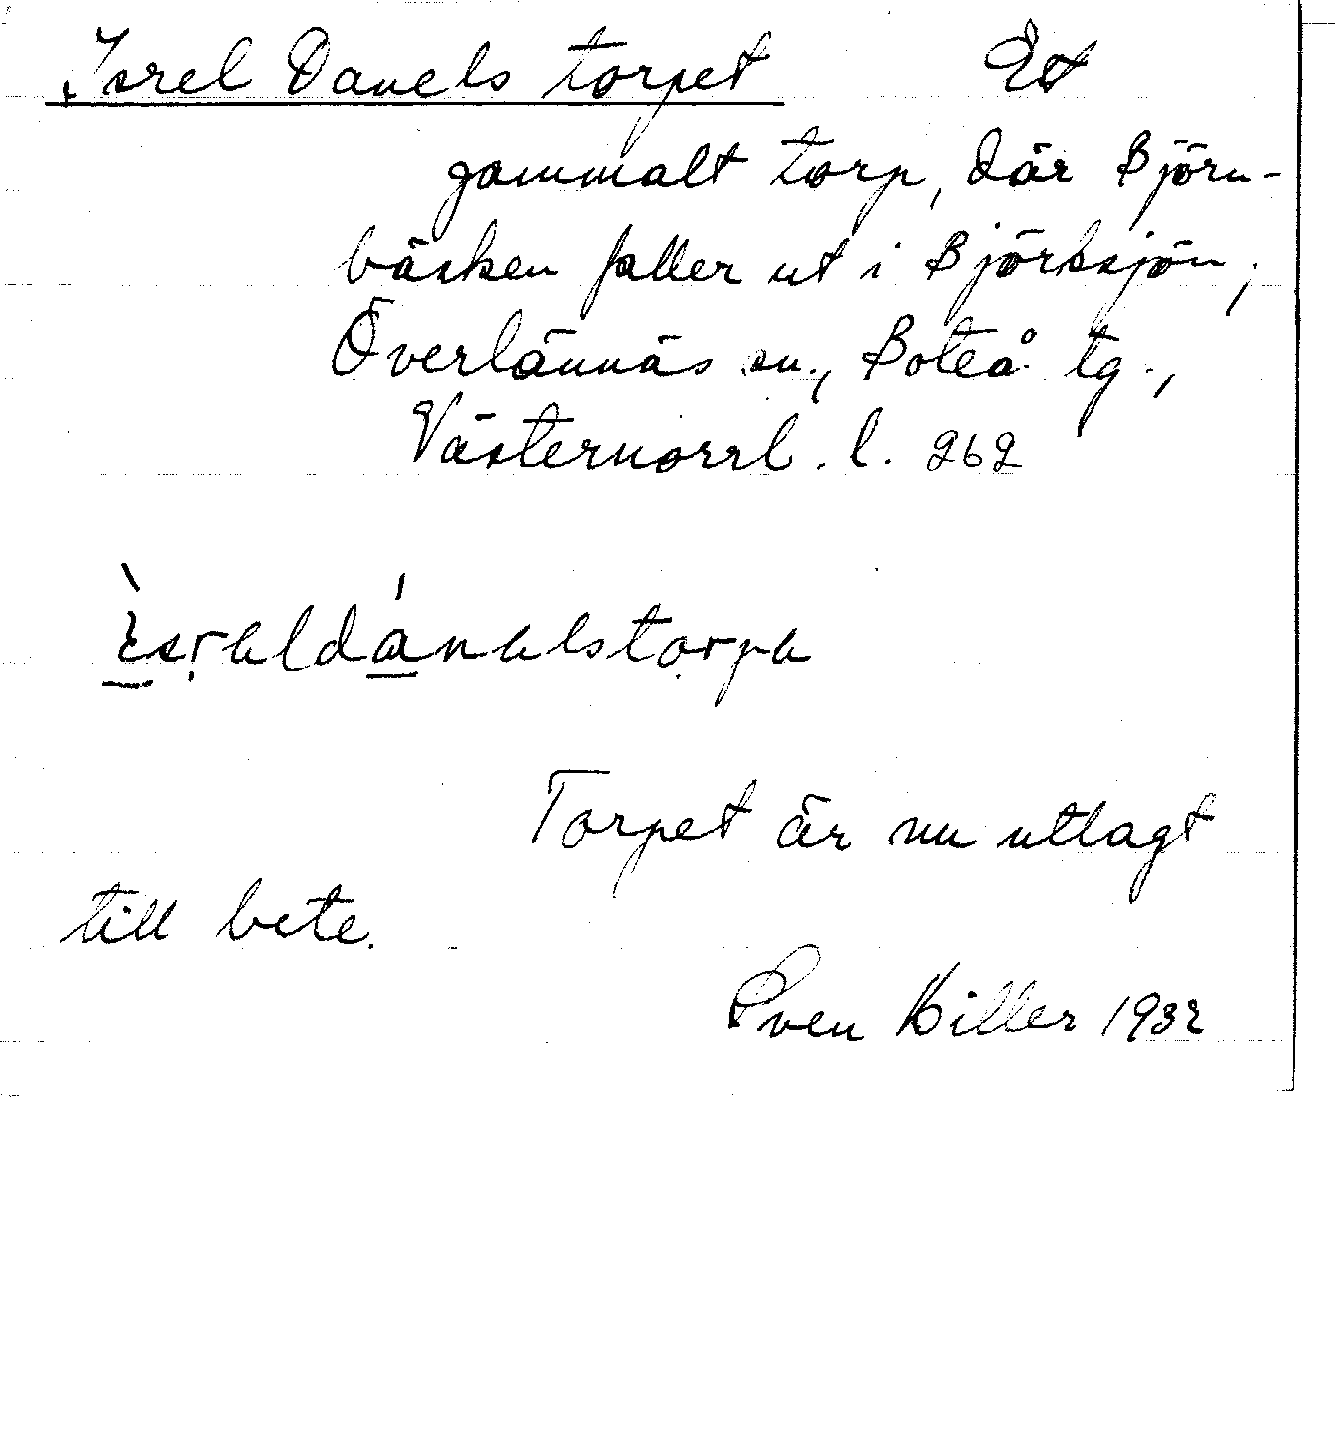 Isrel Danels torpet Et
gammalt torp, där Björn-
bäcken faller ut i Björksjön,
Överlännäs sn., Boteå tg.,
Västernorrl. l. 262
Torpet är nu utlagt
till bete.
Sven Hiller 1932